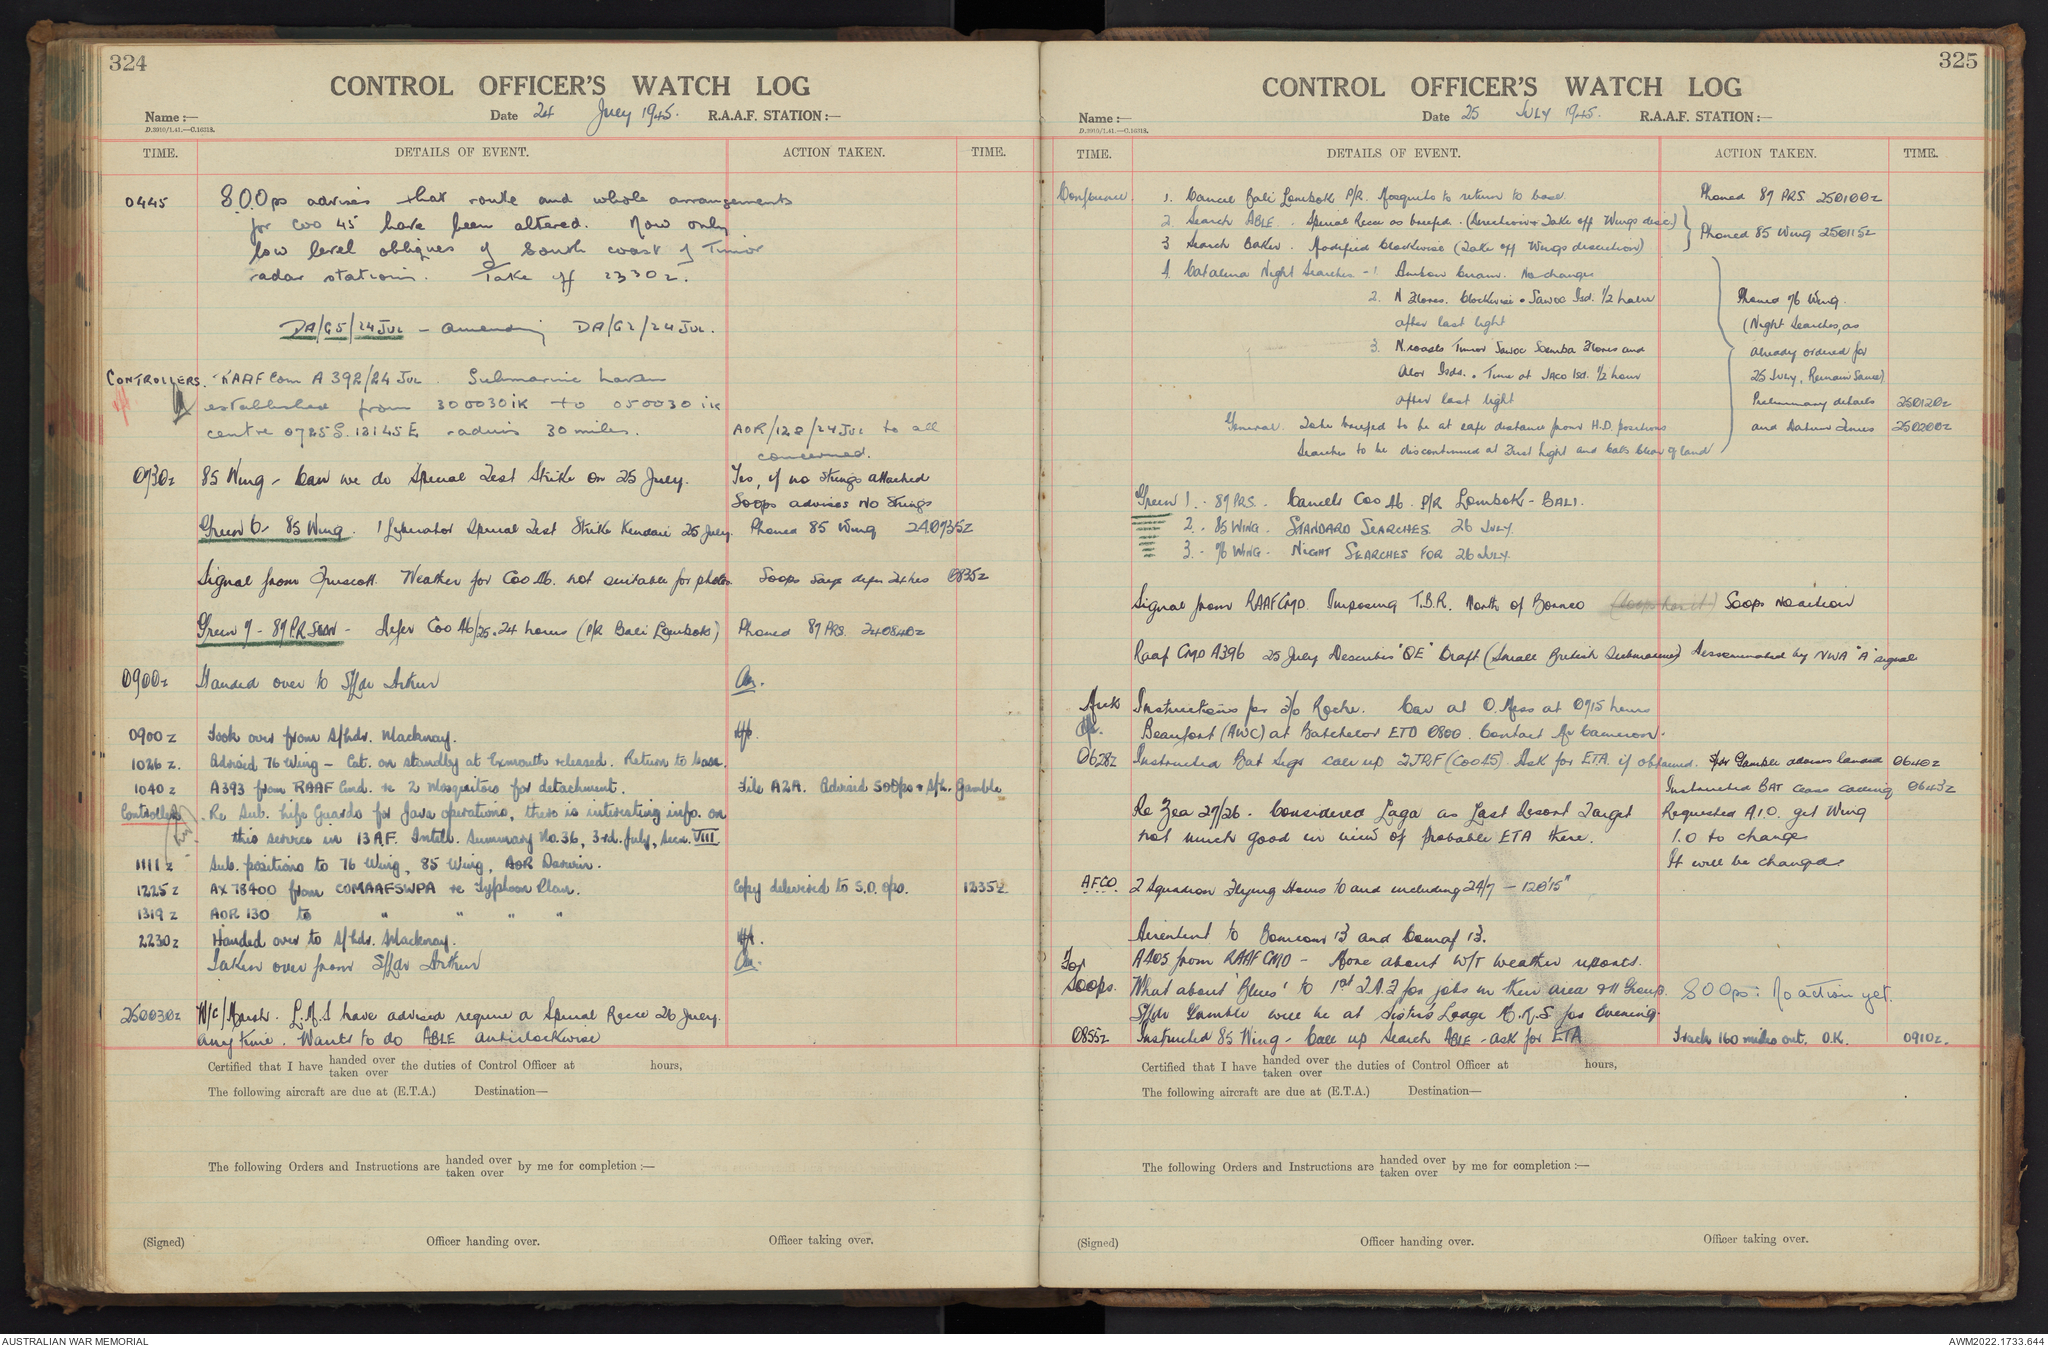 324
CONTROL OFFICER'S WATCH LOG
Name :— Date 24 July 1945. R.A.A.F. STATION :—
D.3910/1.41.—C.16318.
TIME. DETAILS OF EVENT. ACTION TAKEN. TIME.
0445 S.O.Ops advises that route and whole arrangements
for Coo 45 have been altered. Now only
low level obliques of South coast of Timor
radar stations. Take off 2330z.
DA/G5/24 JUL - amending DA/G2/24 JUL.
CONTROLLERS. RAAFCom A392/24 JUL. Submarine haven
established from 300030 IK to 050030 IK
centre 0725S. 13145E radius 30 miles. AOR/128/24 JUL to all
concerned.
0730z 85 Wing - Can we do Special Test Strike on 25 July. Yes, if no strings attached
Soops advises No Strings
Green 6 - 85 Wing. 1 Liberator Special Test Strike Kendari 25 July. Phoned 85 Wing 240735z
Signal from Truscott. Weather for Coo 46. not suitable for photos. Soops says defer 24 hrs 0835z
Green 7 - 87 PR SQDN - Defer Coo 46/25. 24 hours (P/R Bali Lombok) Phoned 87 PRS. 240840z
0900z Handed over to S/Ldr Arthur
0900z Took over from S/Ldr. Mackway.
1026z. Advised 76 Wing - Cat. on standby at Exmouth released. Return to base.
1040z A393 from RAAF Cmd. re 2 Mosquitos for detachment. File A2A. Advised SOOps + S/Ldr. Gamble
Controllers. Re Sub. Life Guards for Java operations, there is interesting info. on
this service in 13 A.F. Intell. Summary No. 36, 3rd. July, secn. VIII.
1111z Sub. positions to 76 Wing, 85 Wing, AOR Darwin.
1225z AX 78400 from COMAAFSWPA re Typhoon Plan. Copy delivered to S.O. Ops. 1235z
1319z AOR 130 to " " " "
2230z Handed over to S/Ldr. Mackway.
Taken over from S/Ldr Arthur
250030z W/C Marsh. L.M.S have advised require a Special Recce 26 July.
any time. Wants to do ABLE anticlockwise
Certified that I have handed over taken over the duties of Control Officer at hours,
The following aircraft are due at (E.T.A.) Destination—
The following Orders and Instructions are handed over taken over by me for completion :—
(Signed) Officer handing over. Officer taking over.
325
CONTROL OFFICER'S WATCH LOG
Name :— Date 25 JULY 1945. R.A.A.F. STATION :—
D.3910/1.41.—C.16318.
TIME. DETAILS OF EVENT. ACTION TAKEN. TIME.
Conference. 1. Cancel Bali Lombok P/R. Mosquito to return to base. Phoned 87 PRS. 250100z
2. Search ABLE. Special Recce as briefed. (Direction & Take off Wings disc.)
3 Search Baker. Modified clockwise (Take off Wings discretion) Phoned 85 Wing 250115z
4. Catalina Night Searches - 1. Ambon Ceram. No changes
2. N Flores. Clockwise. Sawoe Isd. 1/2 hour Phoned 76 Wing.
after last light (Night Searches, as
3. N. coasts Timor Sawoe Soemba Flores and already ordered for
Alor Isds. Time at JACO Isd. 1/2 hour 25 July, Remain Same)
after last light Preliminary details 250120z
General. To be briefed to be at safe distance from H.D. positions and Datum Times 250200z
Searches to be discontinued at First light and Cats clear of land
Green 1. - 87 PRS. Cancels Coo 46. P/R Lombok - BALI.
2. - 85 WING. STANDARD SEARCHES 26 JULY.
3. - 76 WING. NIGHT SEARCHES FOR 26 JULY.
Signal from RAAFCMD. Imposing T.B.R. North of Borneo Soops No action
Raaf CMD A396 25 July Describes 'QE' Craft (Small British Submarine) Disseminated by NWA "A" signal
Instructions for F/O Roche. Car at O. Mess at 0715 hours
Beaufort (AWC) at Batchelor ETD 0800. Contact Mr Cameron.
0628z Instructed Bat Sigs call up 2JRF (Coo 45). Ask for ETA. if obtained. S/Ldr Gamble advises landed 0640z
Instructed BAT cease calling 0643z
Re Zea 27/26. Considered Laga as Last Resort Target Requested A.I.O. get Wing
not much good in view of probable ETA there. I.O to change
It will be changed.
AFCO. 2 Squadron Flying Hours to and including 24/7 - 120'15"
Disentent to Bomcom 13 and Comaf 13.
For A405 from RAAF CMD - More about W/T weather reports.
SOOps. What about 'Blues' to 1st T.A.F for jobs in their area & 11 Group. SOOps: No action yet.
S/Ldr Gamble will be at Sisters Lodge for Evening.
0855z Instructed 85 Wing - Call up Search ABLE - ask for ETA Track 160 miles out. O.K. 0910z.
Certified that I have handed over taken over the duties of Control Officer at hours,
The following aircraft are due at (E.T.A.) Destination—
The following Orders and Instructions are handed over taken over by me for completion :—
(Signed) Officer handing over. Officer taking over.
AUSTRALIAN WAR MEMORIAL AWM2022.1733.644